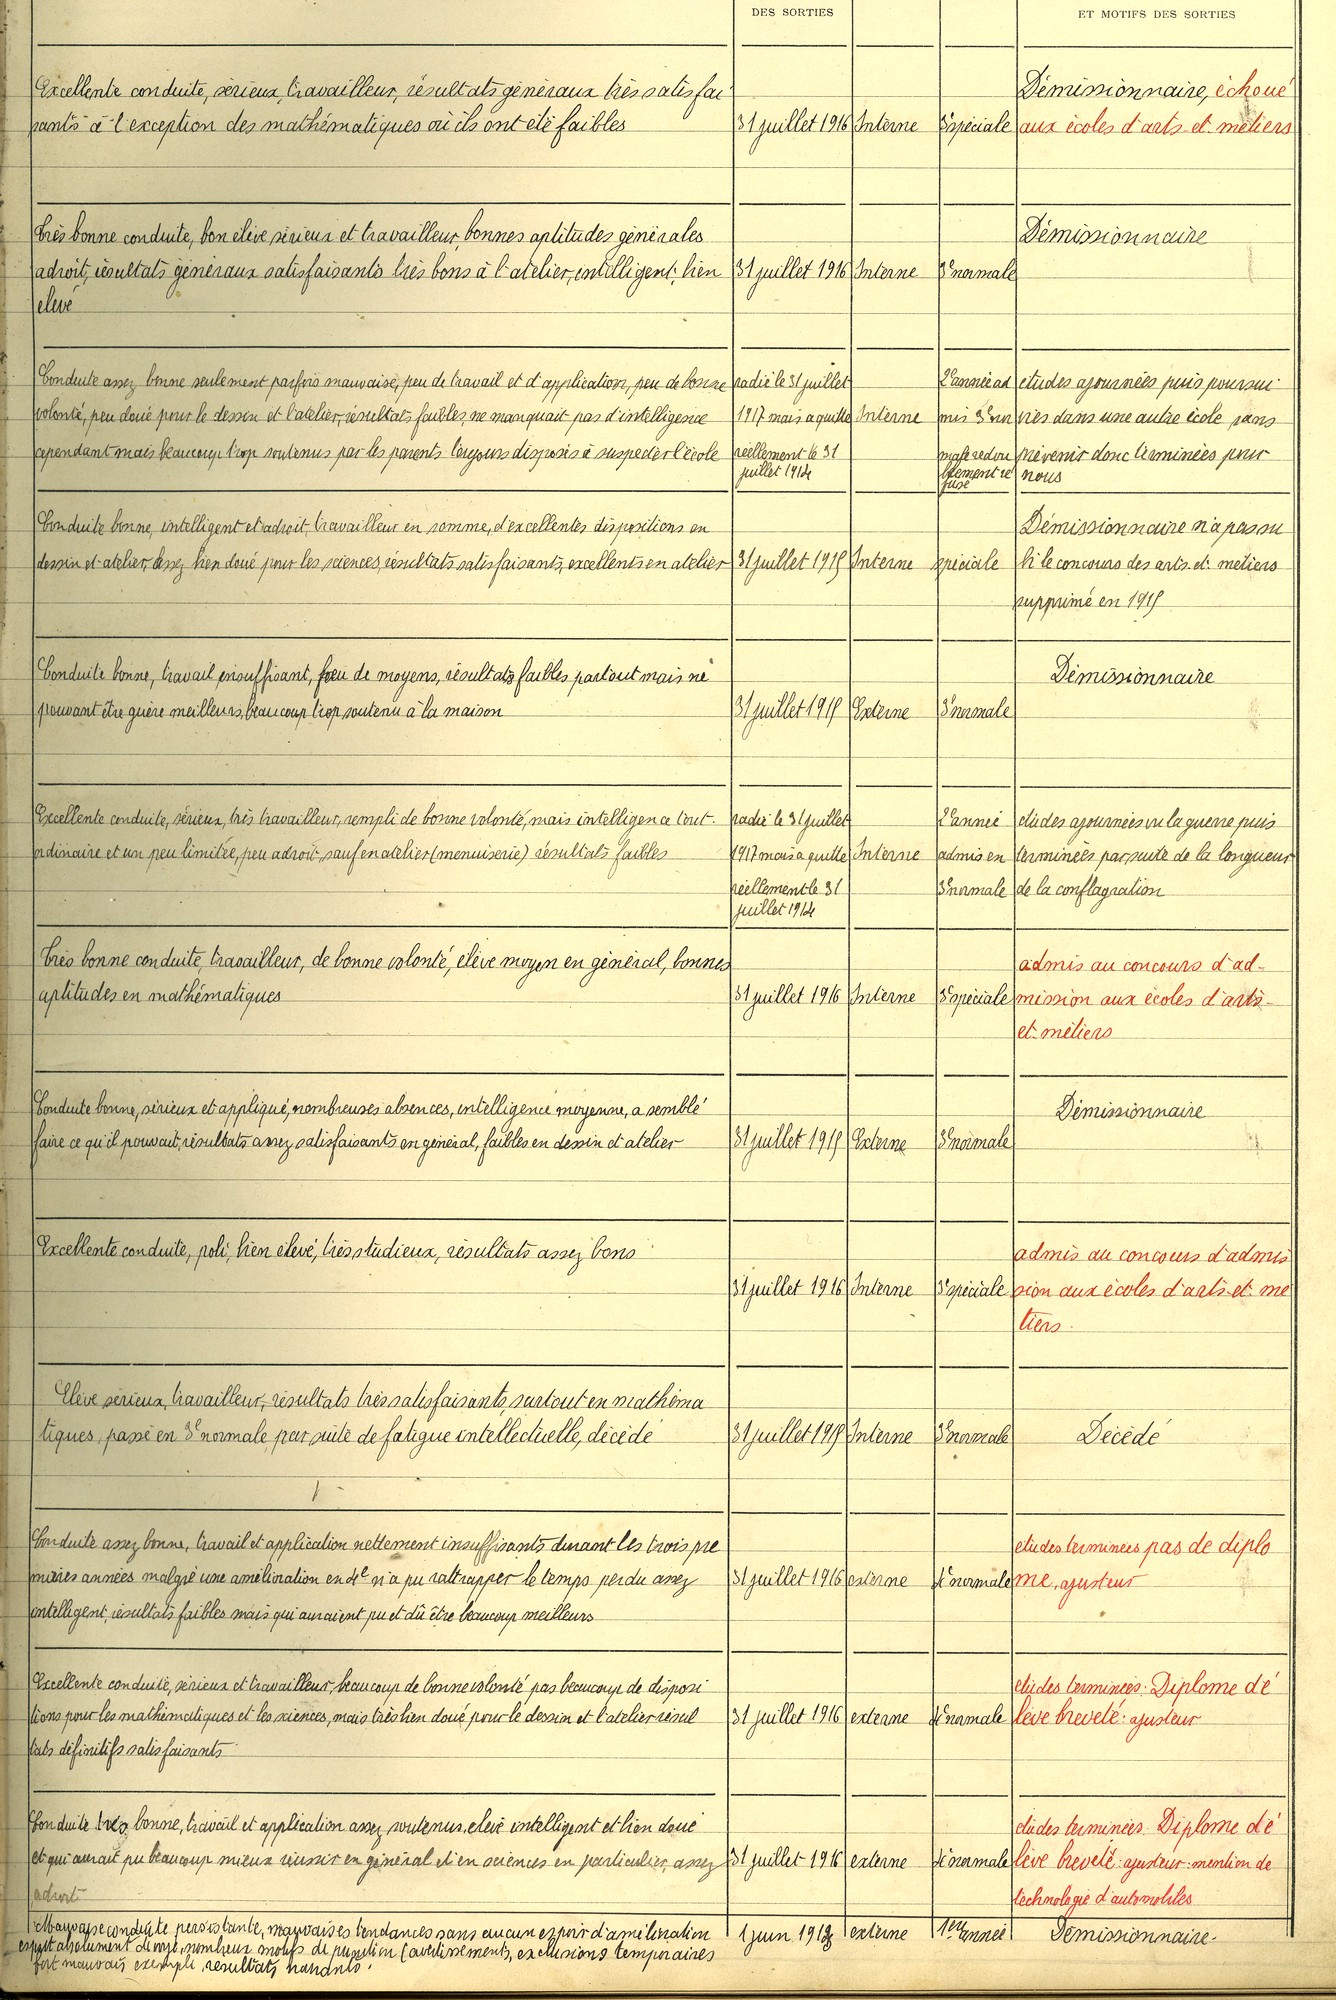 DES SORTIES
ET MOTIFS DES SORTIES
Excellente conduite, sérieux, travailleur, résultats généraux très satisfai
sants à l'exception des mathématiques où ils ont été faibles
31 juillet 1916
Interne
3e spéciale
Démissionnaire, échoué
aux écoles d'arts et métiers
Très bonne conduite, bon élève sérieux et travailleur, bonnes aptitudes générales
adroit, résultats généraux satisfaisants très bons à l'atelier, intelligent, bien
élevé
31 juillet 1916
Interne
3e normale
Démissionnaire
Conduite assez bonne seulement parfois mauvaise, peu de travail et d'application, peu de bonne
volonté, peu doué pour le dessin et l'atelier, résultats faibles, ne manquait pas d'intelligence
cependant mais beaucoup trop soutenus par les parents toujours disposés à suspecter l'école
radié le 31 juillet
1917 mais a quitté
réellement le 31
juillet 1914
Interne
2e année ad
mis 3e nor
male redou
blement re
fusé
études ajournées puis poursui
vies dans une autre école sans
prévenir donc terminées pour
nous
Conduite bonne, intelligent et adroit, travailleur en somme, d'excellentes dispositions en
dessin et atelier, assez bien doué pour les sciences, résultats satisfaisants, excellents en atelier
31 juillet 1915
Interne
spéciale
Démissionnaire n'a pas su
bi le concours des arts et métiers
supprimé en 1915
Conduite bonne, travail insuffisant, peu de moyens, résultats faibles partout mais ne
pouvant être guère meilleurs, beaucoup trop soutenu à la maison
31 juillet 1915
Externe
3e normale
Démissionnaire
Excellente conduite, sérieux, très travailleur, rempli de bonne volonté, mais intelligence tout
ordinaire et un peu limitée, peu adroit, sauf en atelier (menuiserie) résultats faibles
radié le 31 juillet
1917 mais a quitté
réellement le 31
juillet 1914
Interne
2e année
admis en
3e normale
études ajournées vu la guerre puis
terminées par suite de la longueur
de la conflagration
Très bonne conduite, travailleur, de bonne volonté, élève moyen en général, bonnes
aptitudes en mathématiques
31 juillet 1916
Interne
3e spéciale
admis au concours d'ad-
mission aux écoles d'arts-
et-métiers
Conduite bonne, sérieux et appliqué, nombreuses absences, intelligence moyenne, a semblé
faire ce qu'il pouvait, résultats assez satisfaisants en général, faibles en dessin et atelier
31 juillet 1915
Externe
3e normale
Démissionnaire
Excellente conduite, poli, bien élevé, très studieux, résultats assez bons
31 juillet 1916
Interne
3e spéciale
admis au concours d'admis
sion aux écoles d'arts et mé
tiers.
Elève sérieux, travailleur, résultats très satisfaisants, surtout en mathéma
tiques, passé en 3e normale par suite de fatigue intellectuelle, décédé
31 juillet 1915
Interne
3e normale
Décédé
Conduite assez bonne, travail et application nettement insuffisants durant les trois pre
mières années malgré une amélioration en 4e n'a pu rattrapper le temps perdu assez
intelligent, résultats faibles mais qui auraient pu et dû être beaucoup meilleurs
31 juillet 1916
externe
4e normale
études terminées pas de diplo
me, ajusteur
Excellente conduite, sérieux et travailleur, beaucoup de bonne volonté pas beaucoup de disposi
tions pour les mathématiques et les sciences, mais très bien doué pour le dessin et l'atelier résul
tats définitifs satisfaisants
31 juillet 1916
externe
4e normale
études terminées. Diplome d'é
lève breveté: ajusteur
Conduite très bonne, travail et application assez soutenus, élève intelligent et bien doué
et qui aurait pu beaucoup mieux réussir en général et en sciences en particulier, assez
adroit
31 juillet 1916
externe
4e normale
études terminées. Diplome d'é
lève breveté: ajusteur: mention de
technologie d'automobiles
Mauvaise conduite persistante, mauvaises tendances sans aucun espoir d'amélioration
esprit absolument dévoyé, nombreux motifs de punition (avertissements, exclusions temporaires
fort mauvais exemple, résultats navrants.
1 juin 1913
externe
1ere année
Démissionnaire.